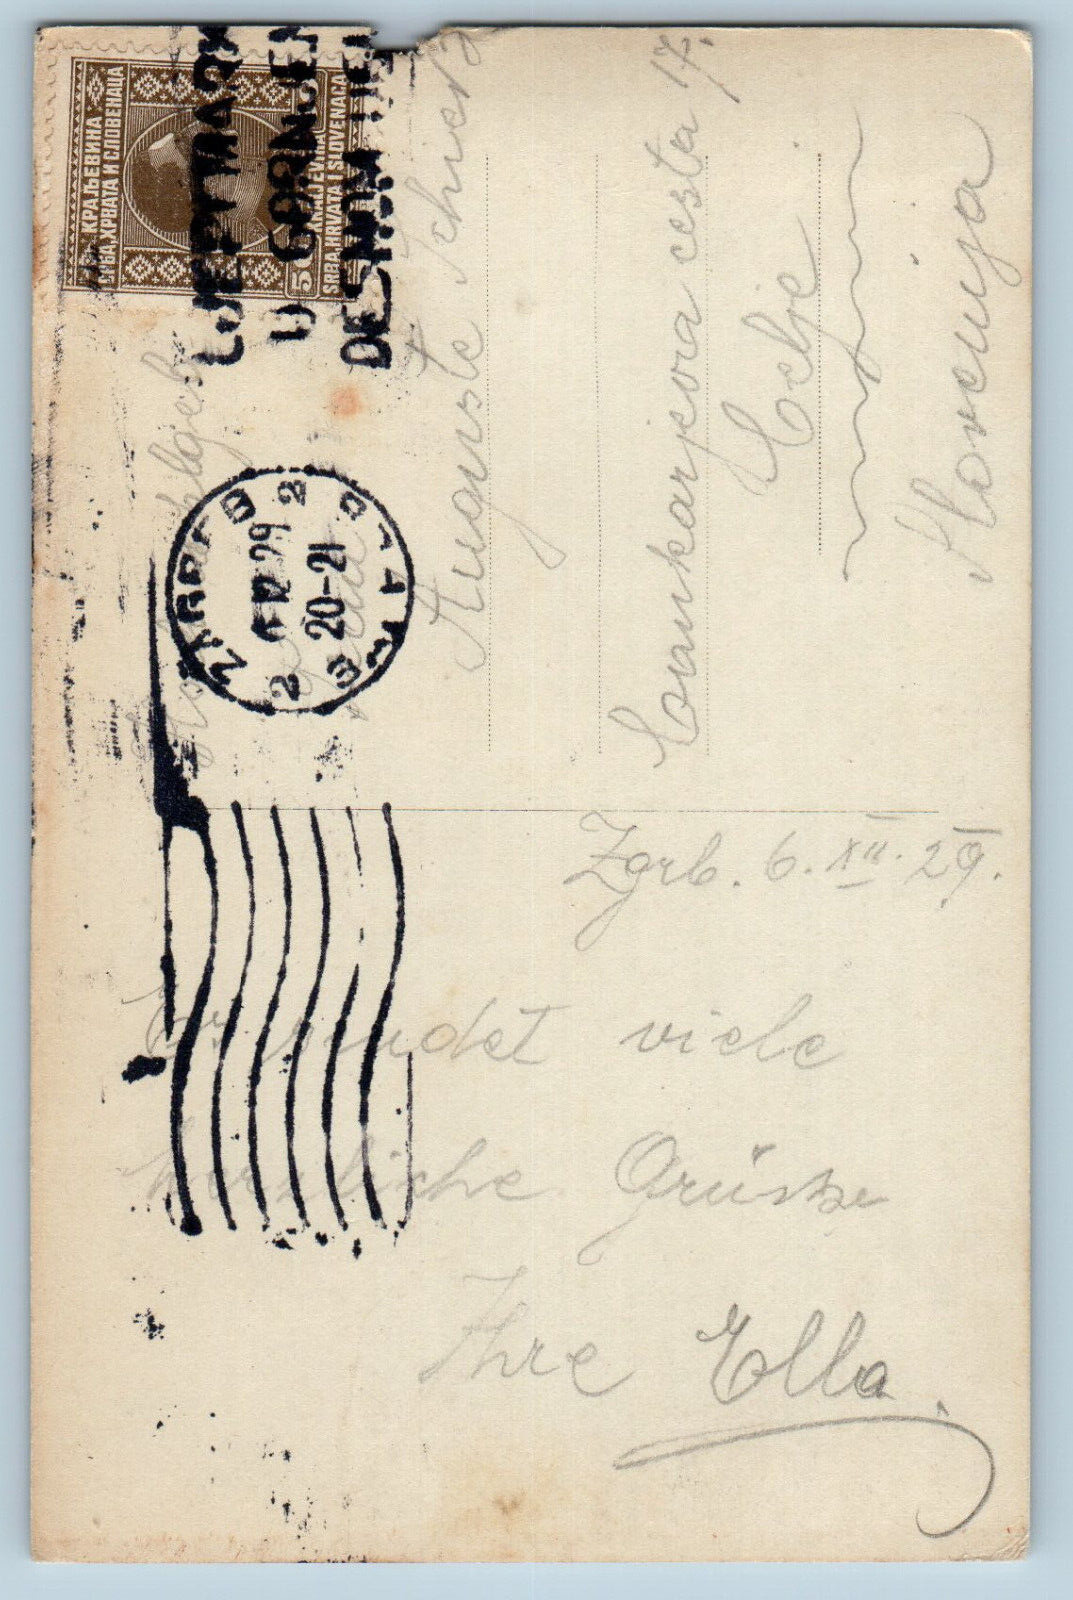 КРАЉЕВИНА
СРБА, ХРВАТА И СЛОВЕНАЦА
KRALJEVINA
SRBA, HRVATA I SLOVENACA
5
U GORNJEM
DESNOM
ZAGREB 2
6 12 29
20-21
2
Auguste
Cankarjeva cesta 17.
Celje
Slovenija
Zgrb. 6. XII. 29.
Es sendet viele
herzliche Grüsse
Ihre Ella.